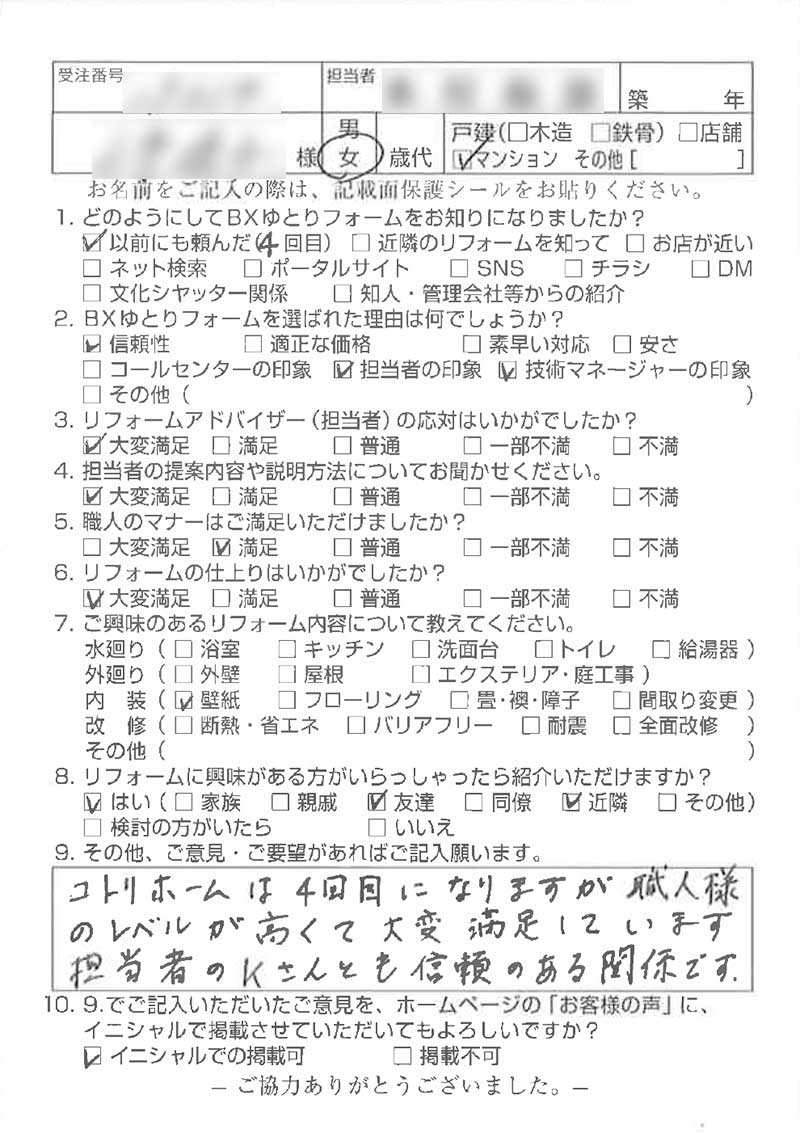 受注番号 担当者 築 年
様 男 女 歳代 戸建(□木造 □鉄骨) □店舗
☑マンション その他[ ]
お名前をご記入の際は、記載面保護シールをお貼りください。
1. どのようにしてBXゆとりフォームをお知りになりましたか?
☑以前にも頼んだ(4回目) □近隣のリフォームを知って □お店が近い
□ネット検索 □ポータルサイト □SNS □チラシ □DM
□文化シヤッター関係 □知人・管理会社等からの紹介
2. BXゆとりフォームを選ばれた理由は何でしょうか?
☑信頼性 □適正な価格 □素早い対応 □安さ
□コールセンターの印象 ☑担当者の印象 ☑技術マネージャーの印象
□その他( )
3. リフォームアドバイザー(担当者)の応対はいかがでしたか?
☑大変満足 □満足 □普通 □一部不満 □不満
4. 担当者の提案内容や説明方法についてお聞かせください。
☑大変満足 □満足 □普通 □一部不満 □不満
5. 職人のマナーはご満足いただけましたか?
□大変満足 ☑満足 □普通 □一部不満 □不満
6. リフォームの仕上りはいかがでしたか?
☑大変満足 □満足 □普通 □一部不満 □不満
7. ご興味のあるリフォーム内容について教えてください。
水廻り(□浴室 □キッチン □洗面台 □トイレ □給湯器)
外廻り(□外壁 □屋根 □エクステリア・庭工事)
内 装(☑壁紙 □フローリング □畳・襖・障子 □間取り変更)
改 修(□断熱・省エネ □バリアフリー □耐震 □全面改修 )
その他( )
8. リフォームに興味がある方がいらっしゃったら紹介いただけますか?
☑はい(□家族 □親戚 ☑友達 □同僚 ☑近隣 □その他)
□検討の方がいたら □いいえ
9. その他、ご意見・ご要望があればご記入願います。
コトリホームは4回目になりますが職人様
のレベルが高くて大変満足しています
担当者のKさんとも信頼のある関係です.
10. 9.でご記入いただいたご意見を、ホームページの「お客様の声」に、
イニシャルで掲載させていただいてもよろしいですか?
☑イニシャルでの掲載可 □掲載不可
– ご協力ありがとうございました。–